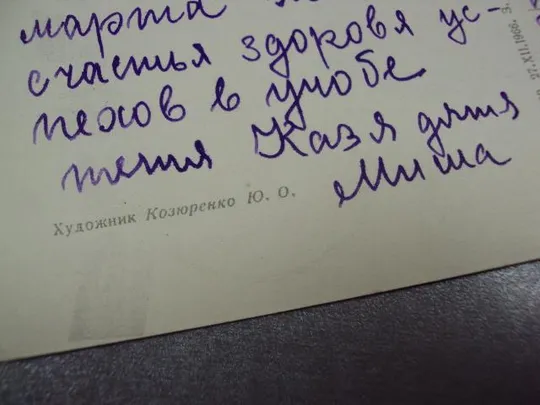 марта
счастья здоровя ус-
пехов в учобе
тетя Казя дядя
Миша
Художник Козюренко Ю. О.
27.XII.1966. З.